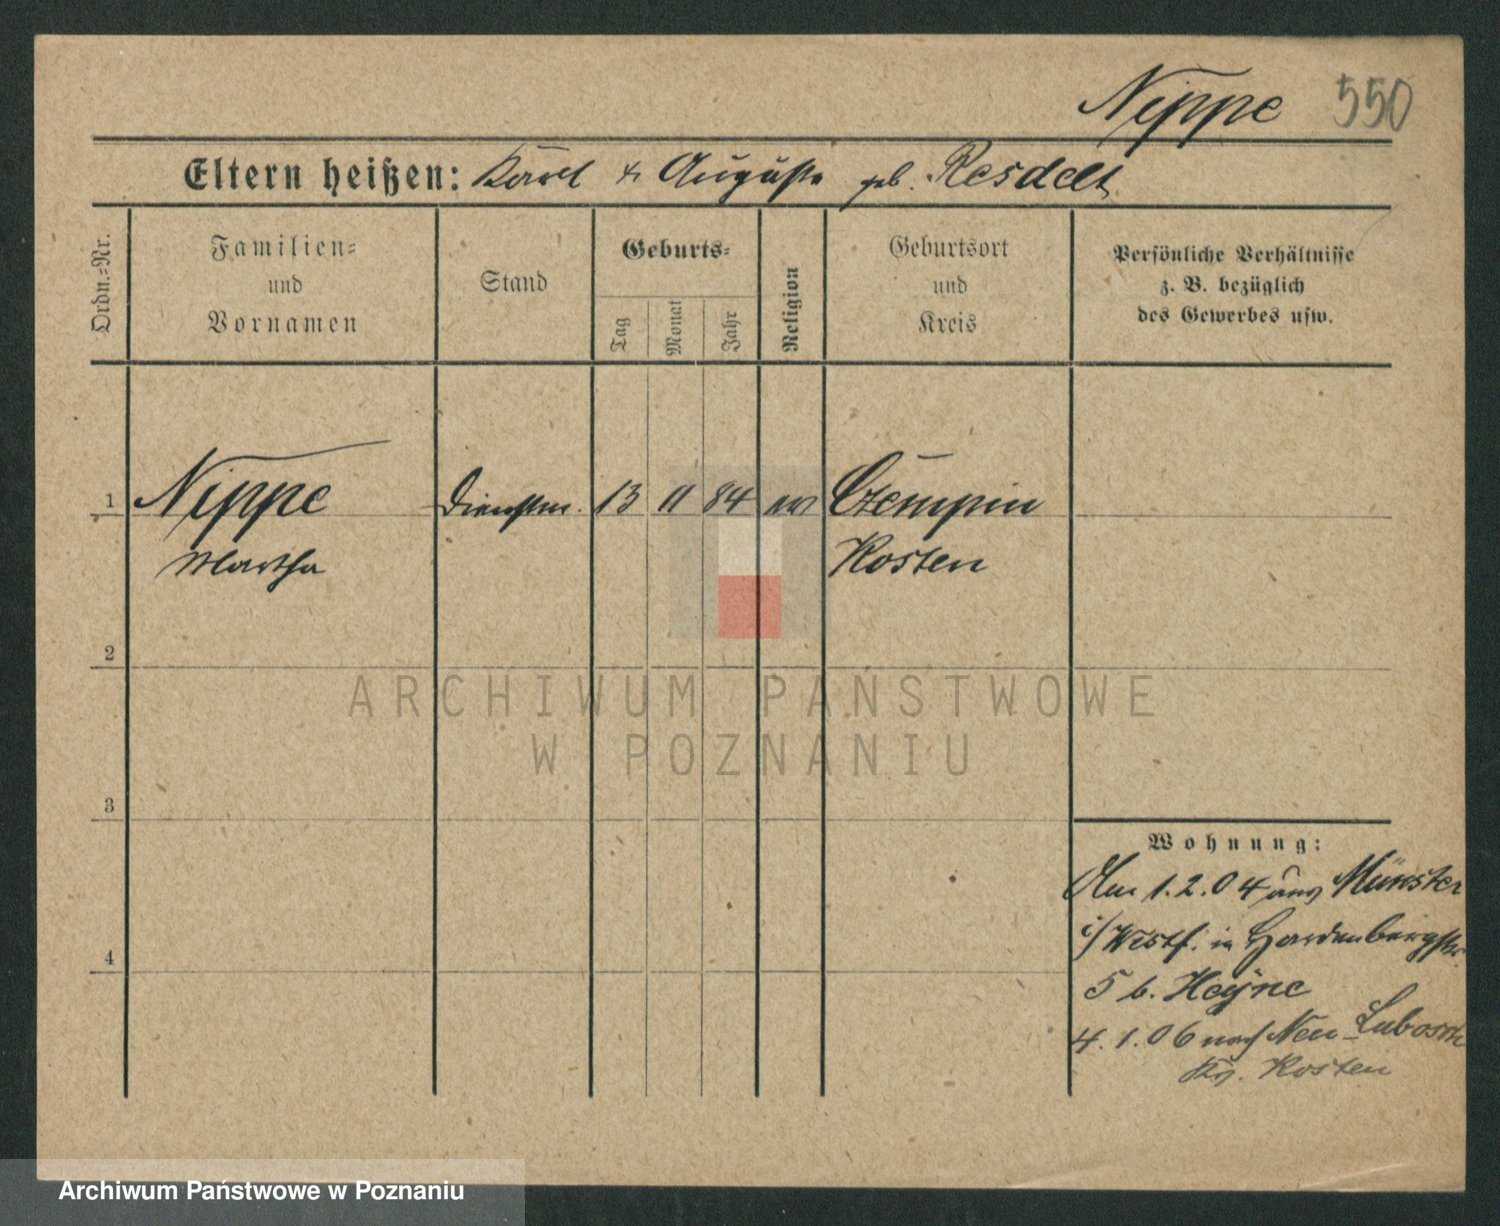 Nippe 550
Eltern heißen: Karl & Auguste geb. Resdelt
Ordn.=Nr.
Familien=
und
Vornamen
Stand
Geburts=
Tag
Monat
Jahr
Religion
Geburtsort
und
Kreis
Persönliche Verhältnisse
z. B. bezüglich
des Gewerbes usw.
1 Nippe Dienstm. 13 11 84 ev Czempin
Martha Kosten
2
3
4
Wohnung:
Am 1.2.04 aus Münster
i/Westf. in Hardenbergstr.
5 b. Heyne
4.1.06 nach Neu-Lubosch
Kr. Kosten
ARCHIWUM PAŃSTWOWE
W POZNANIU
Archiwum Państwowe w Poznaniu